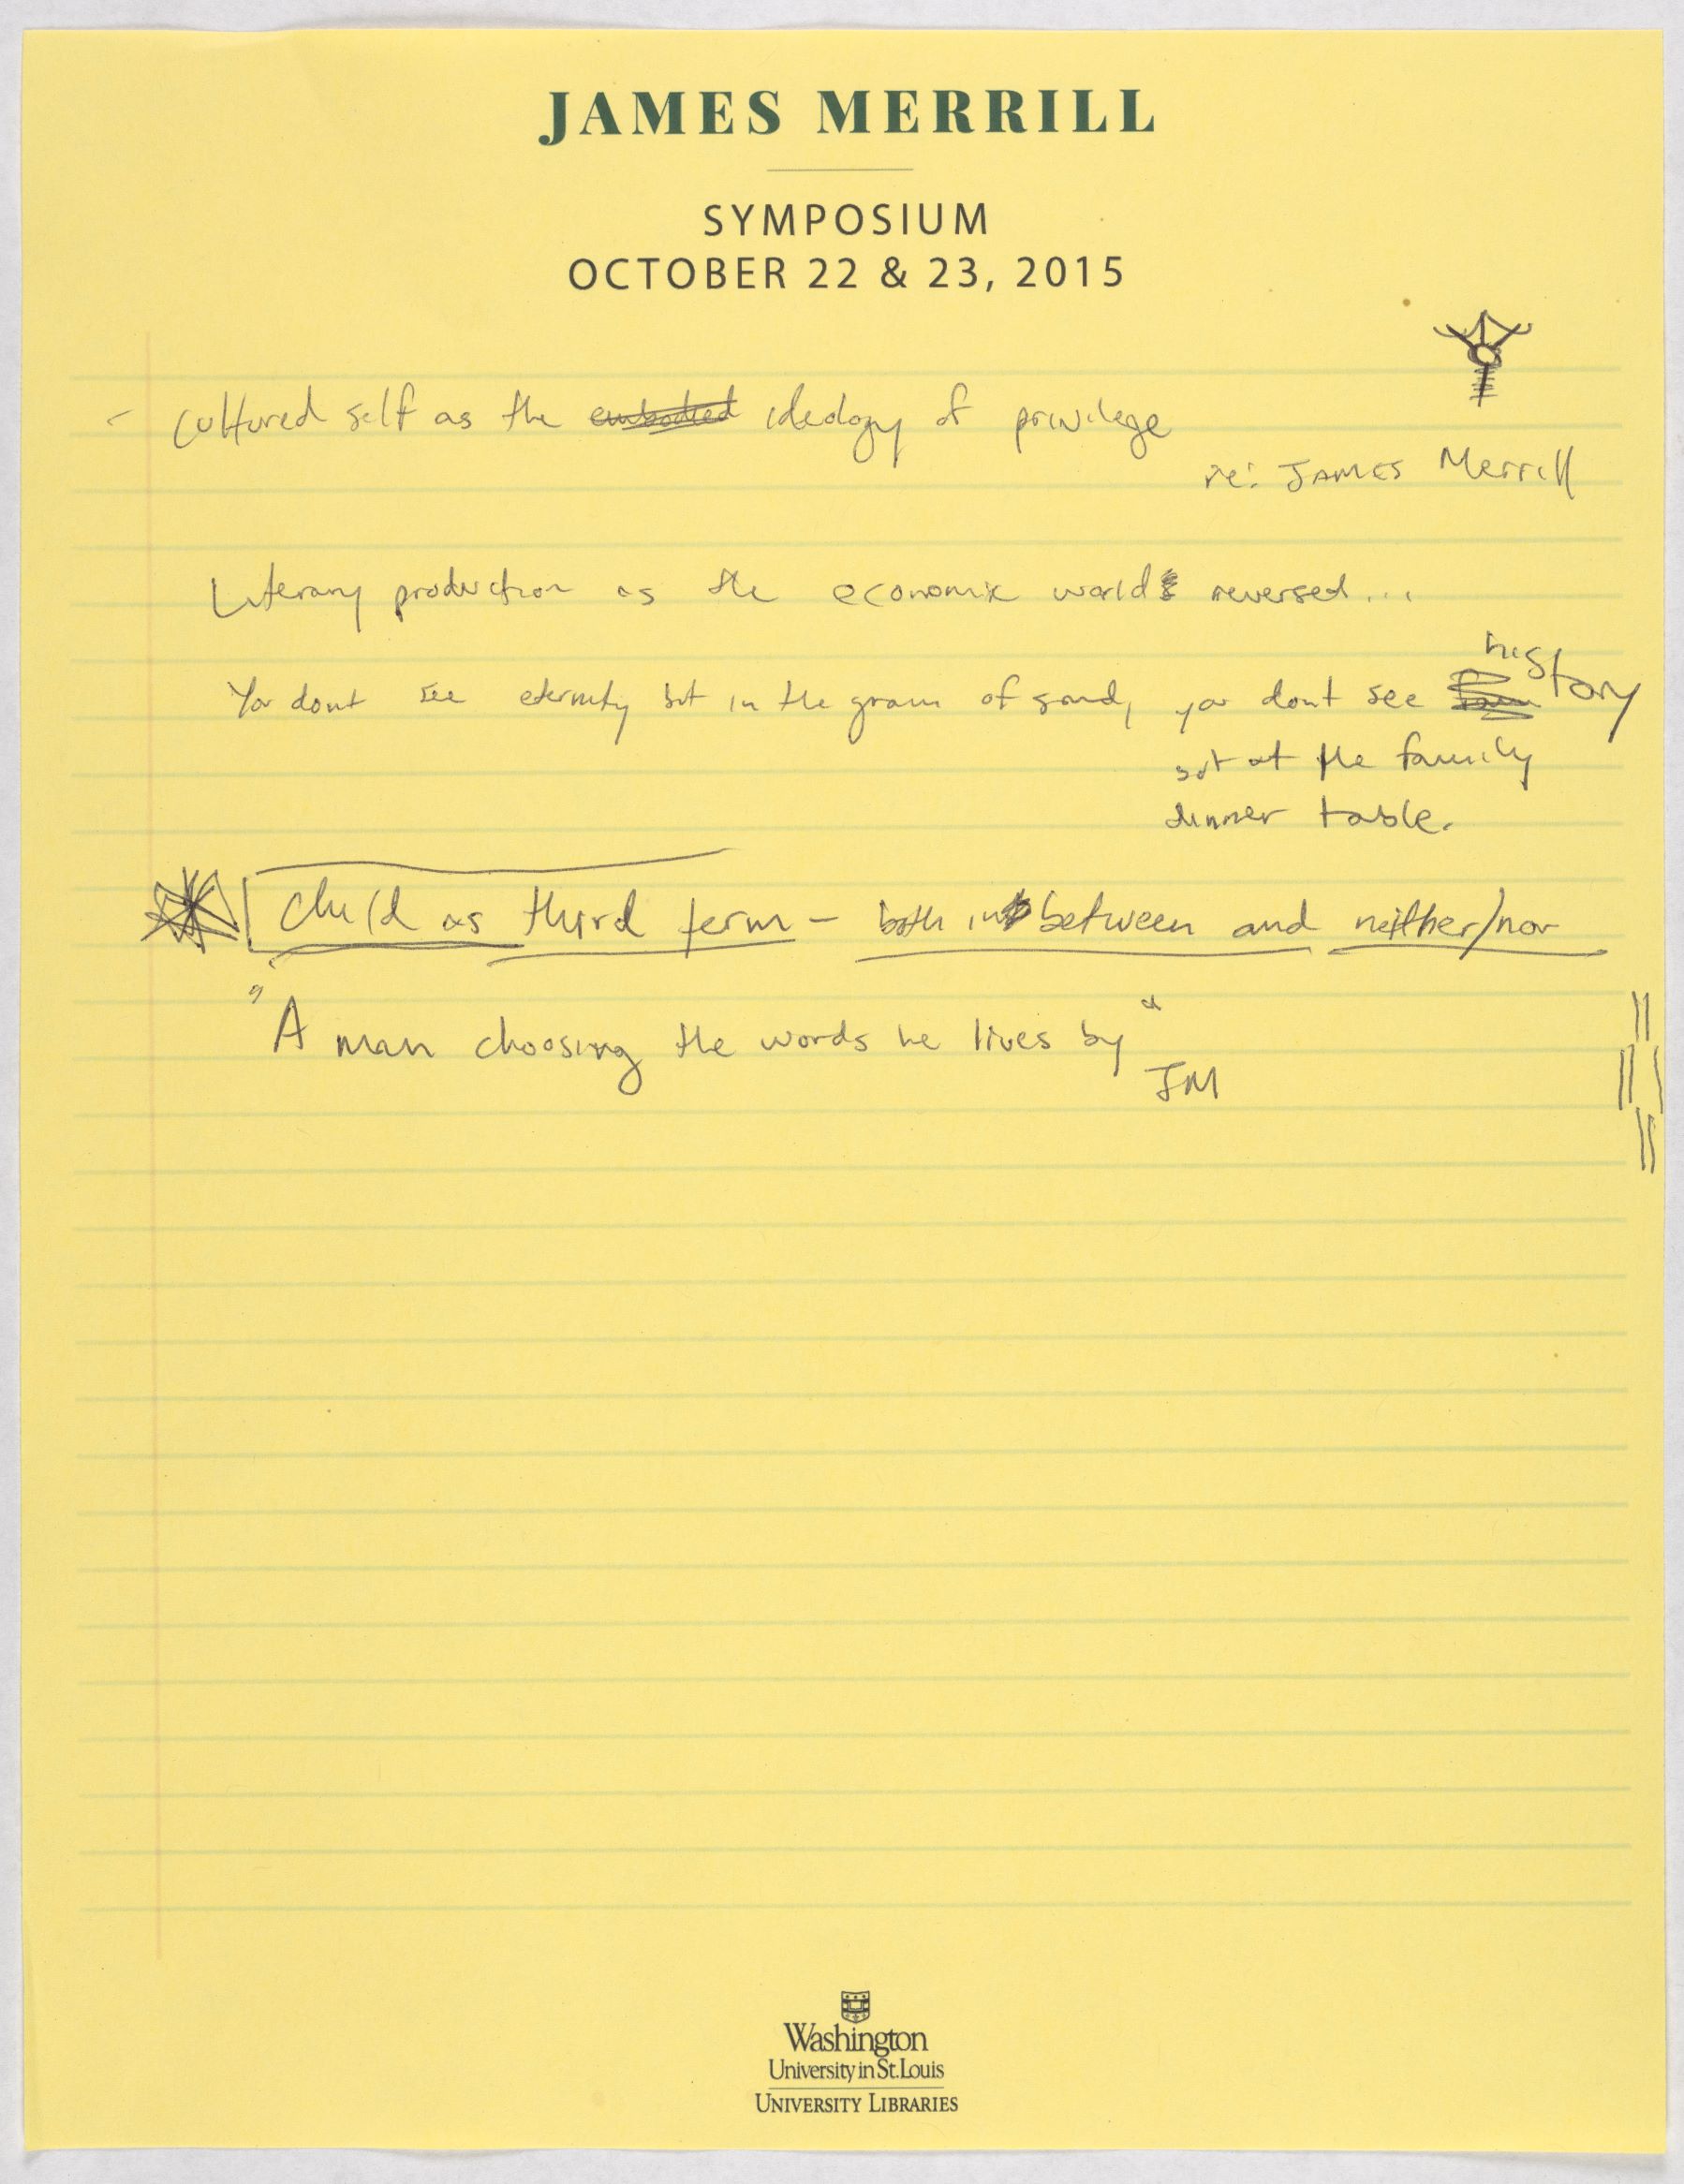 JAMES MERRILL
SYMPOSIUM
OCTOBER 22 & 23, 2015
- Cultured self as the embodied ideology of privilege
re: JAMES Merrill
Literary production as the economic world reversed...
You dont see eternity but in the grain of sand, you dont see history
but at the family
dinner table.
Child as third term – both in between and neither/nor
"A man choosing the words he lives by"
JM
Washington
University in St. Louis
UNIVERSITY LIBRARIES